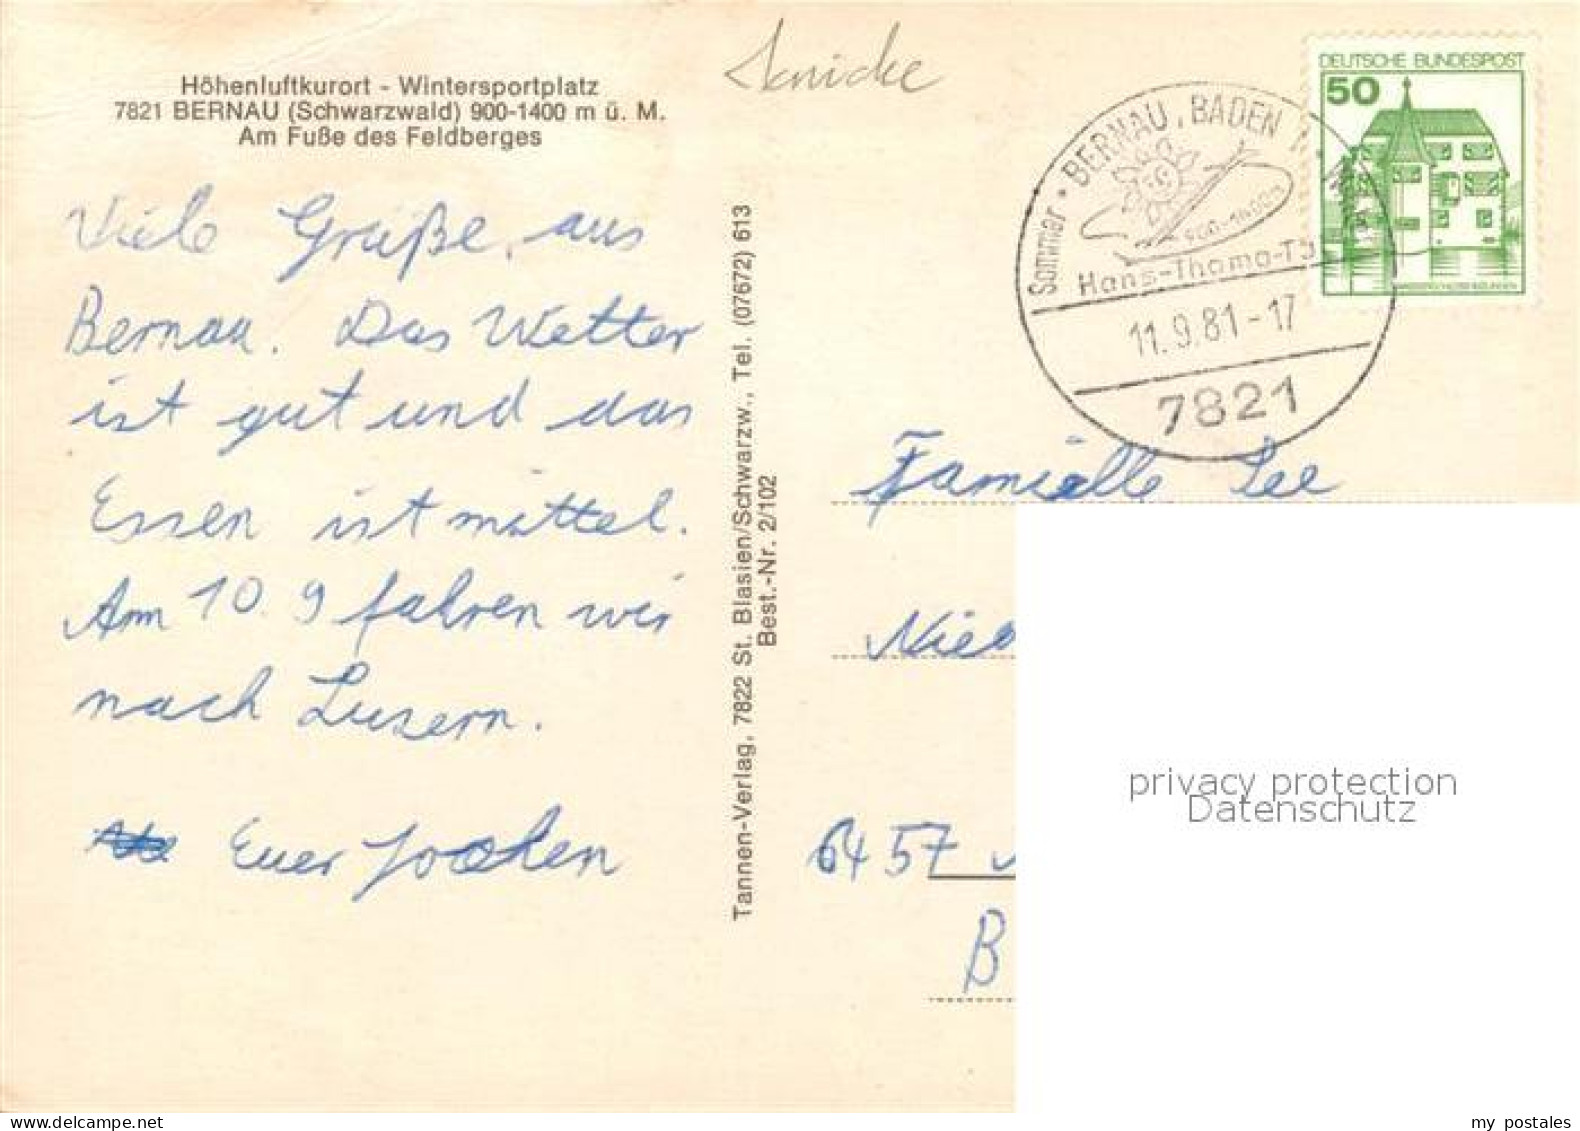 Höhenluftkurort - Wintersportplatz
7821 BERNAU (Schwarzwald) 900-1400 m ü. M.
Am Fuße des Feldberges
Viele Grüße, aus
Bernau. Das Wetter
ist gut und das
Essen ist mittel.
Am 10. 9 fahren wir
nach Luzern.
Euer Jochen
Tannen-Verlag, 7822 St. Blasien/Schwarzw., Tel. (07672) 613
Best.-Nr. 2/102
DEUTSCHE BUNDESPOST
50
BERNAU, BADEN
Sommer
900-1400m
Hans-Thoma-
11.9.81-17
7821
Familie
Nied
6457
B
privacy protection
Datenschutz
my postales